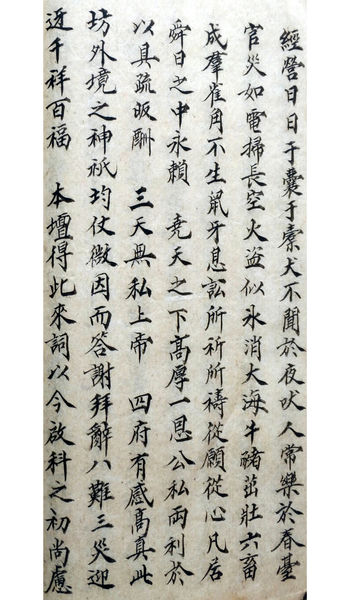 經營日日于囊于橐犬不聞於夜吠人常樂於春臺
官災如電掃長空火盜似氷消大海牛豬茁壯六畜
成羣雀角不生鼠牙息訟所祈所禱從願從心凡居
舜日之中永賴 堯天之下高厚一恩公私両利於
以具疏皈酬 三天無私上帝 四府有感高真此
坊外境之神祇均仗微因而答謝拜辭八難三災迎
迓千祥百福 本壇得此來詞以今啟科之初尚慮